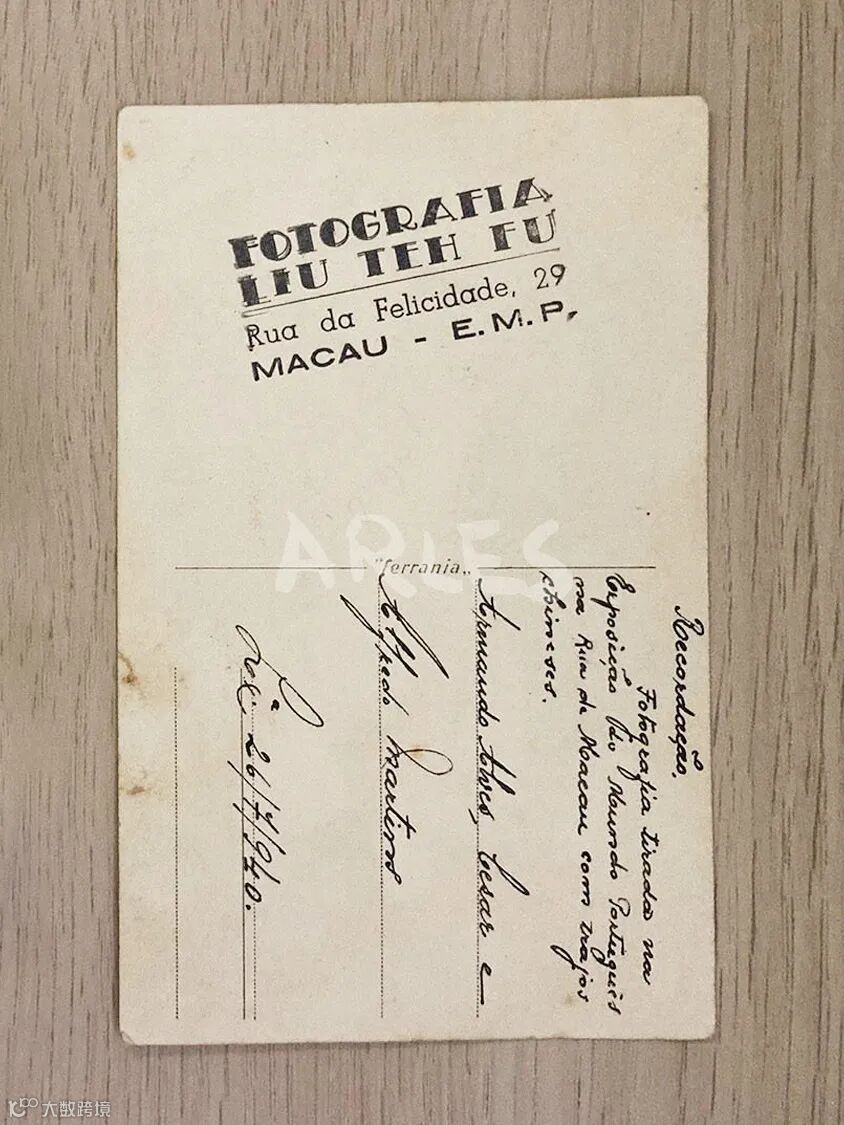 FOTOGRAFIA
LIU TEH FU
Rua da Felicidade, 29
MACAU - E.M.P.
"ferrania"
Recordação.
Fotografia tirada na
Exposição Do Mundo Português
na Rua de Macau com trajos
chineses.
Armando Alves, Cesar e
Alfredo Martins
Lxª 26/7/940.
ARLES
大数跨境